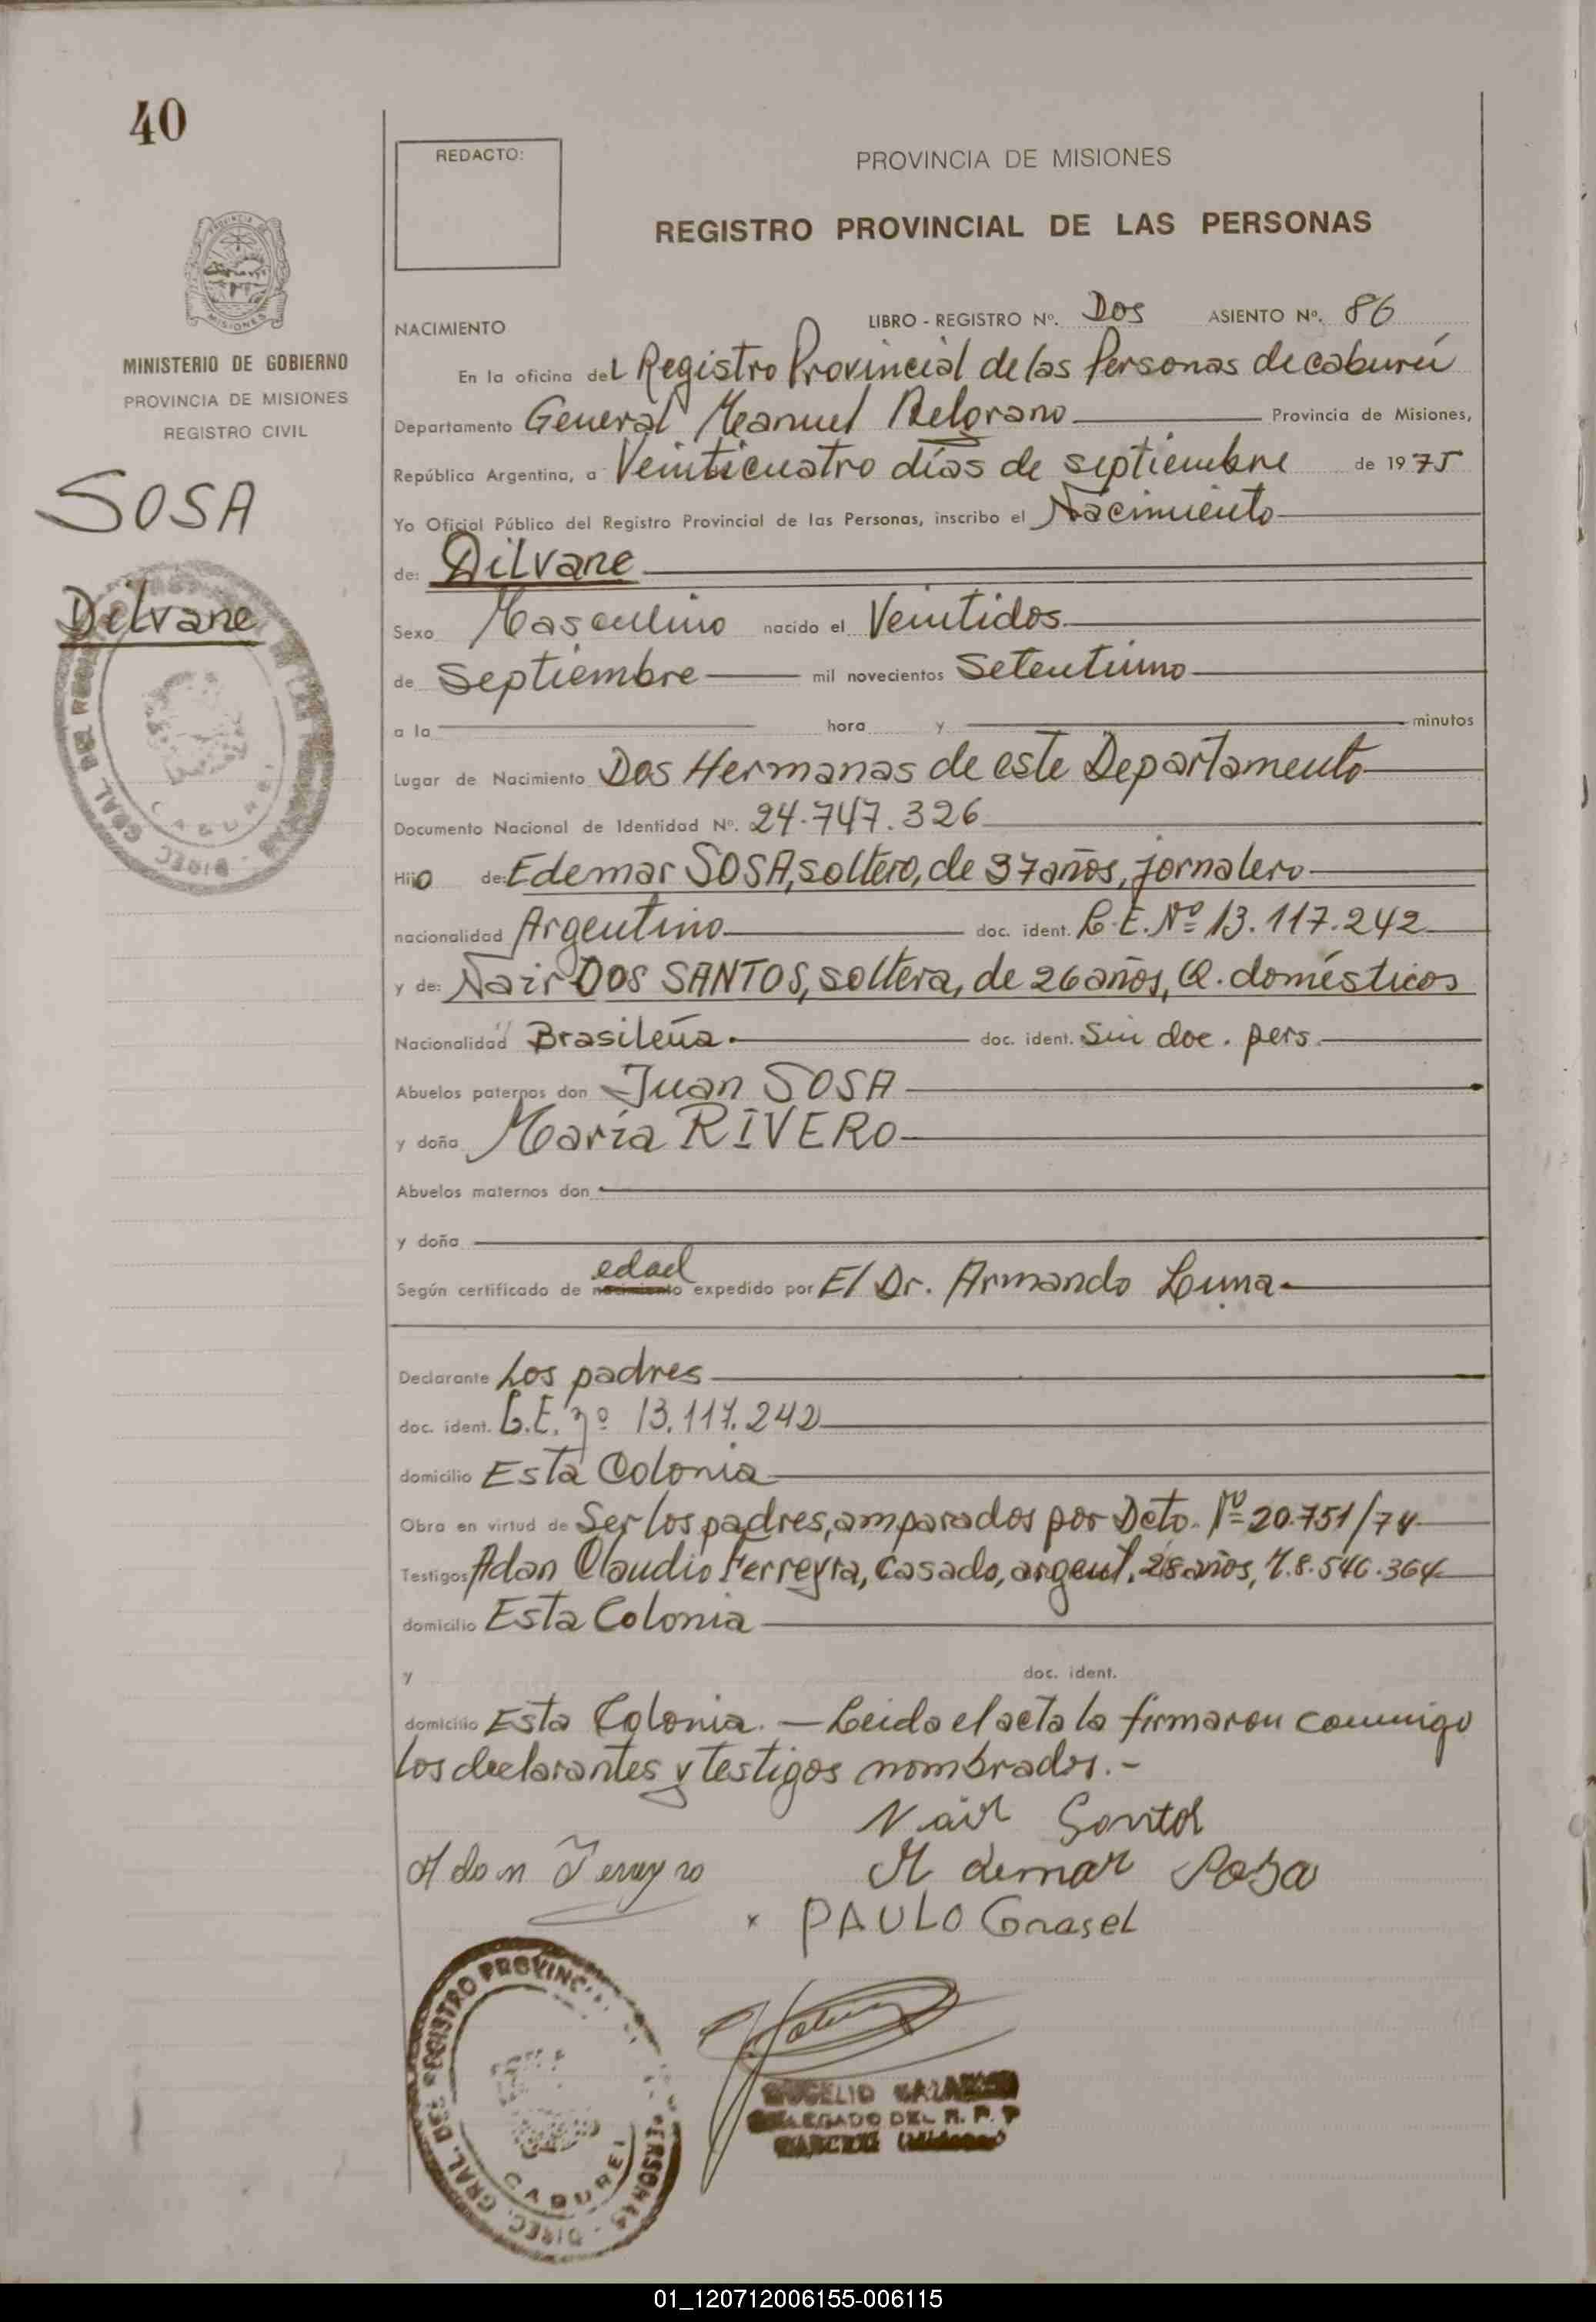 40
REDACTO:
PROVINCIA DE MISIONES
REGISTRO PROVINCIAL DE LAS PERSONAS
MISIONES
MINISTERIO DE GOBIERNO
PROVINCIA DE MISIONES
REGISTRO CIVIL
SOSA
Dilvane
NACIMIENTO LIBRO - REGISTRO Nº. Dos ASIENTO Nº. 86
En la oficina del Registro Provincial de las Personas de caburei
Departamento General Manuel Belgrano Provincia de Misiones,
República Argentina, a Veinticuatro días de septiembre de 1975
Yo Oficial Público del Registro Provincial de las Personas, inscribo el Nacimiento
de: Dilvane
Sexo Masculino nacido el Veintidos
de Septiembre mil novecientos setentiuno
a la hora y minutos
Lugar de Nacimiento Dos Hermanas de este Departamento
Documento Nacional de Identidad Nº. 24.747.326
Hijo de: Edemar SOSA, soltero, de 37 años, jornalero
nacionalidad Argentino doc. ident. L.E. Nº 13.117.242
y de: Nair DOS SANTOS, soltera, de 26 años, Q. domésticos
Nacionalidad Brasileña. doc. ident. Sin doc. pers.
Abuelos paternos don Juan SOSA
y doña María RIVERO
Abuelos maternos don
y doña
edad
Según certificado de nacimiento expedido por El Dr. Armando Luna
Declarante Los padres
doc. ident. L.E. nº 13.117.242
domicilio Esta Colonia
Obra en virtud de Ser los padres, amparados por Dcto. Nº 20.751/74
Testigos Adan Claudio Ferreyra, casado, argent. 28 años, 7.8.546.364
domicilio Esta Colonia
y doc. ident.
domicilio Esta Colonia. — Leida el acta la firmaron conmigo
los declarantes y testigos nombrados.-
Nair Santos
Adan Ferreyra
Edemar Sosa
x PAULO Grasel
DELEGADO DEL R. P. P
DIREC. GRAL. DEL REGISTRO PROVINC
PERSONAS
CABUREI
01_120712006155-006115